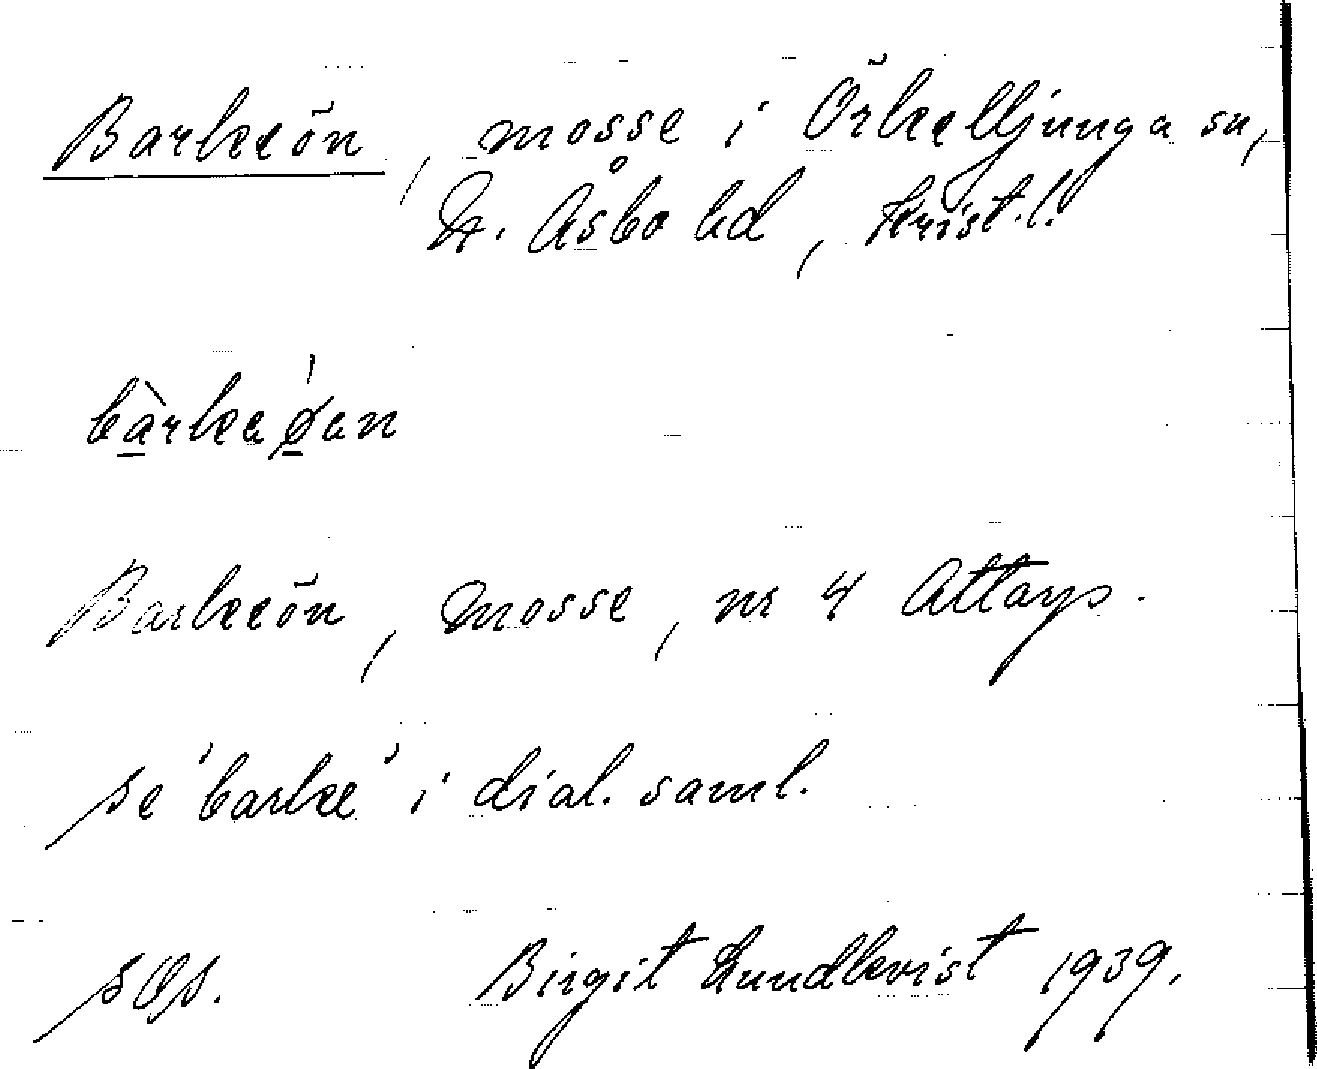 Barkeön, mosse i Örkelljunga sn,
N. Åsbo hd, Krist. l.
bàrkaǿan
Barkeön, mosse, nr 4 Attarp.
se 'barke' i dial. saml.
Birgit Lundkvist 1939.